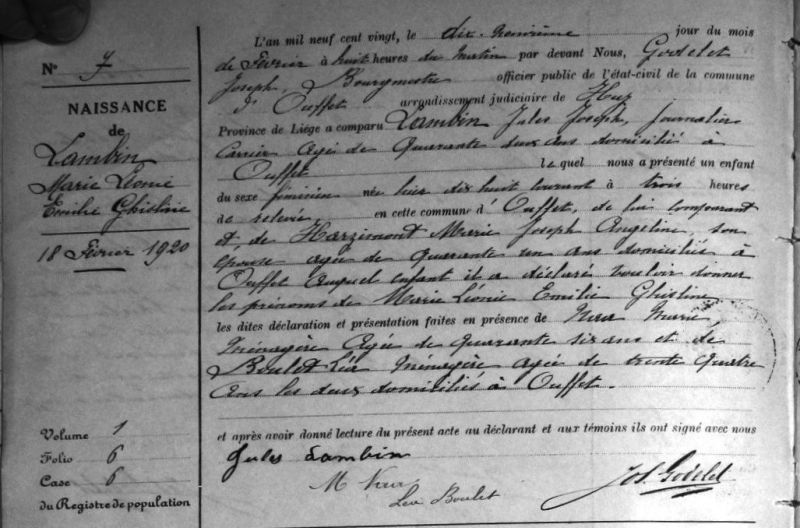 N° 7
NAISSANCE
de
Lambin
Marie Léonie
Emilie Ghislaine
18 Février 1920
Volume 1
Folio 6
Case 6
du Registre de population
L'an mil neuf cent vingt, le dix-neuvième jour du mois
de Février à huit heures du matin par devant Nous, Godelet
Joseph, Bourgmestre officier public de l'état-civil de la commune
d'Ouffet arrondissement judiciaire de Huy
Province de Liége a comparu Lambin Jules Joseph, journalier
Carrier agé de Quarante deux ans domicilié à
Ouffet lequel nous a présenté un enfant
du sexe féminin née hier dix huit courant à trois heures
de relevée, en cette commune d'Ouffet, de lui comparant
et, de Harzimont Marie Joseph Angeline, son
épouse agée de quarante un ans domiciliée à
Ouffet auquel enfant il a déclaré vouloir donner
les prénoms de Marie Léonie Emilie Ghislaine
les dites déclaration et présentation faites en présence de Marie,
Ménagère Agée de quarante six ans et de
Boulet Léa Ménagère agée de trente quatre
ans les deux domiciliés à Ouffet.
et après avoir donné lecture du présent acte au déclarant et aux témoins ils ont signé avec nous
Jules Lambin
M
Lea Boulet
Jos. Godelet